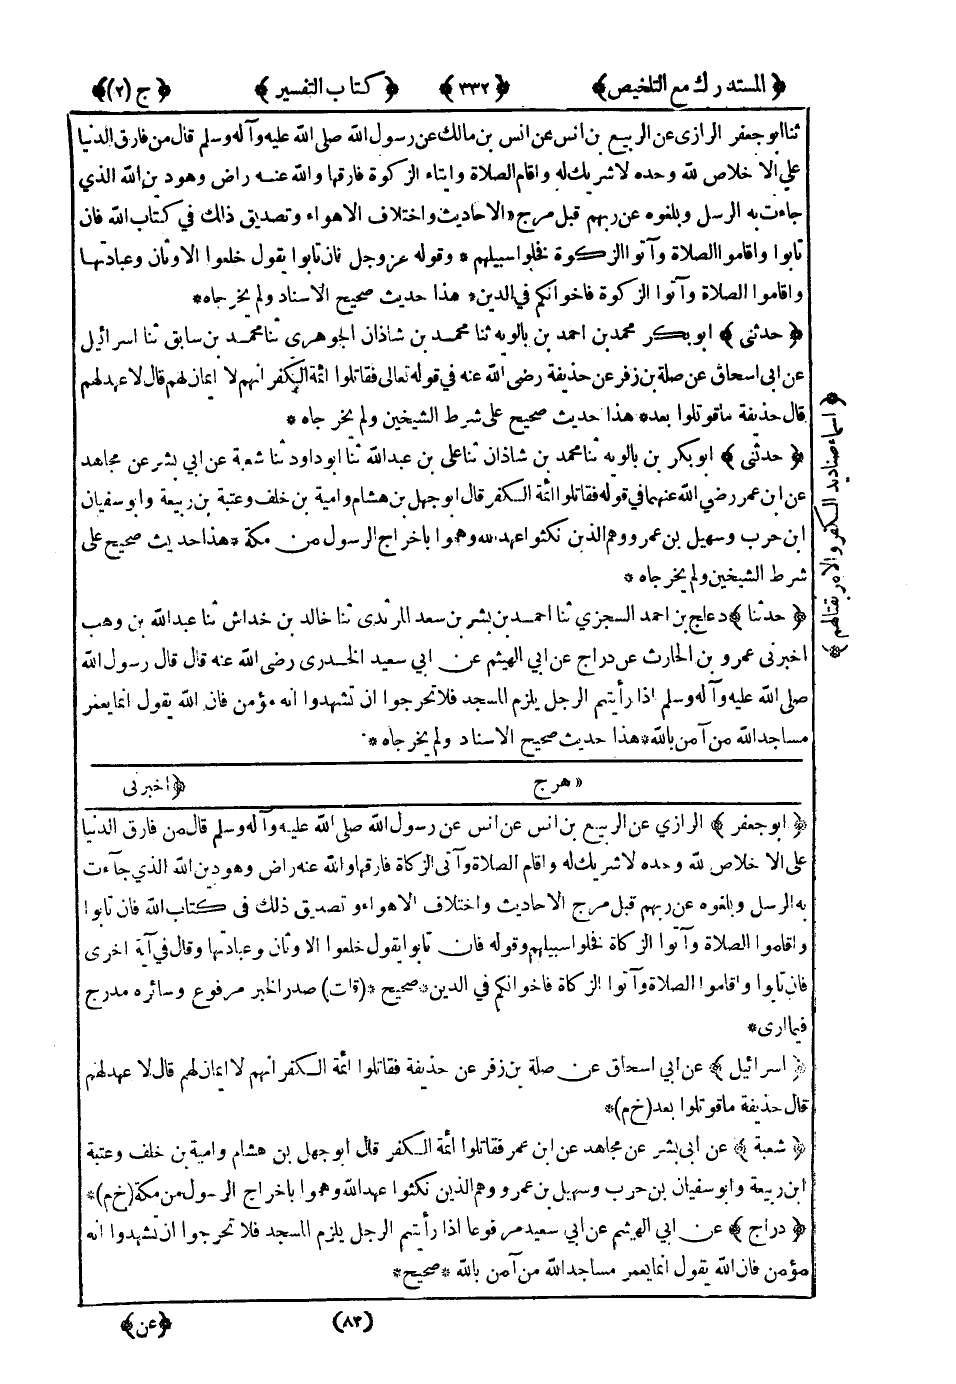 ﴿ المستدرك مع التلخيص ﴾ ﴿ ٣٣٢ ﴾ ﴿ كتاب التفسير ﴾ ﴿ ج (٢) ﴾
ثنا ابو جعفر الرازى عن الربيع بن انس عن انس بن مالك عن رسول الله صلى الله عليه وآله وسلم قال من فارق الدنيا
على الاخلاص لله وحده لا شريك له واقام الصلاة وايتاء الزكوة فارقها والله عنه راض وهو دين الله الذي
جاءت به الرسل وبلغوه عن ربهم قبل مرج « الاحاديث واختلاف الاهواء وتصديق ذلك في كتاب الله فان
تابوا واقاموا الصلاة وآتوا الزكوة فخلوا سبيلهم * وقوله عز وجل فان تابوا يقول خلعوا الاوثان وعبادتها
واقاموا الصلاة وآتوا الزكوة فاخوانكم في الدين * هذا حديث صحيح الاسناد ولم يخرجاه *
﴿ حدثنى ﴾ ابو بكر محمد بن احمد بن بالويه ثنا محمد بن شاذان الجوهرى ثنا محمد بن سابق ثنا اسرائيل
عن ابى اسحاق عن صلة بن زفر عن حذيفة رضى الله عنه في قوله تعالى فقاتلوا ائمة الكفر انهم لا ايمان لهم قال لا عهد لهم
قال حذيفة ما قوتلوا بعد * هذا حديث صحيح على شرط الشيخين ولم يخرجاه *
﴿ حدثنى ﴾ ابو بكر بن بالويه ثنا محمد بن شاذان ثنا على بن عبد الله ثنا ابو داود ثنا شعبة عن ابي بشر عن مجاهد
عن ابن عمر رضي الله عنهما في قوله فقاتلوا ائمة الكفر قال ابو جهل بن هشام وامية بن خلف وعتبة بن ربيعة وابو سفيان
ابن حرب وسهيل بن عمرو وهم الذين نكثوا عهد الله وهموا باخراج الرسول من مكة * هذا حديث صحيح على
شرط الشيخين ولم يخرجاه *
﴿ حدثنا ﴾ دعلج بن احمد السجزي ثنا احمد بن بشر بن سعد المرثدى ثنا خالد بن خداش ثنا عبد الله بن وهب
اخبرنى عمرو بن الحارث عن دراج عن ابي الهيثم عن ابي سعيد الخدرى رضى الله عنه قال قال رسول الله
صلى الله عليه وآله وسلم اذا رأيتم الرجل يلزم المسجد فلا تحرجوا ان تشهدوا انه مؤمن فان الله يقول انما يعمر
مساجد الله من آمن بالله * هذا حديث صحيح الاسناد ولم يخرجاه *
« هرج ﴿ اخبرنى
﴿ ابو جعفر ﴾ الرازي عن الربيع بن انس عن انس عن رسول الله صلى الله عليه وآله وسلم قال من فارق الدنيا
على الاخلاص لله وحده لا شريك له واقام الصلاة وآتى الزكاة فارقها والله عنه راض وهو دين الله الذي جآءت
به الرسل وبلغوه عن ربهم قبل مرج الاحاديث واختلاف الاهواء وتصديق ذلك فى كتاب الله فان تابوا
واقاموا الصلاة وآتوا الزكاة فخلوا سبيلهم وقوله فان تابوا يقول خلعوا الاوثان وعبادتها وقال في آية اخرى
فان تابوا واقاموا الصلاة وآتوا الزكاة فاخوانكم في الدين * صحيح * (قات) صدر الخبر مرفوع وسائره مدرج
فيما ارى *
﴿ اسرائيل ﴾ عن ابي اسحاق عن صلة بن زفر عن حذيفة فقاتلوا ائمة الكفر انهم لا ايمان لهم قال لا عهد لهم
قال حذيفة ما قوتلوا بعد (خ م) *
﴿ شعبة ﴾ عن أبى بشر عن مجاهد عن ابن عمر فقاتلوا ائمة الكفر قال ابو جهل بن هشام وامية بن خلف وعتبة
ابن ربيعة وابو سفيان بن حرب وسهيل بن عمرو وهم الذين نكثوا عهد الله وهموا باخراج الرسول من مكة (خ م) *
﴿ دراج ﴾ عن ابي الهيثم عن ابي سعيد مرفوعا اذا رأيتم الرجل يلزم المسجد فلا تحرجوا ان تشهدوا انه
مؤمن فان الله يقول انما يعمر مساجد الله من آمن بالله * صحيح *
(٨٣) ﴿ عن ﴾
﴿ اسماء صناديد الكفر والامر بقتالهم ﴾